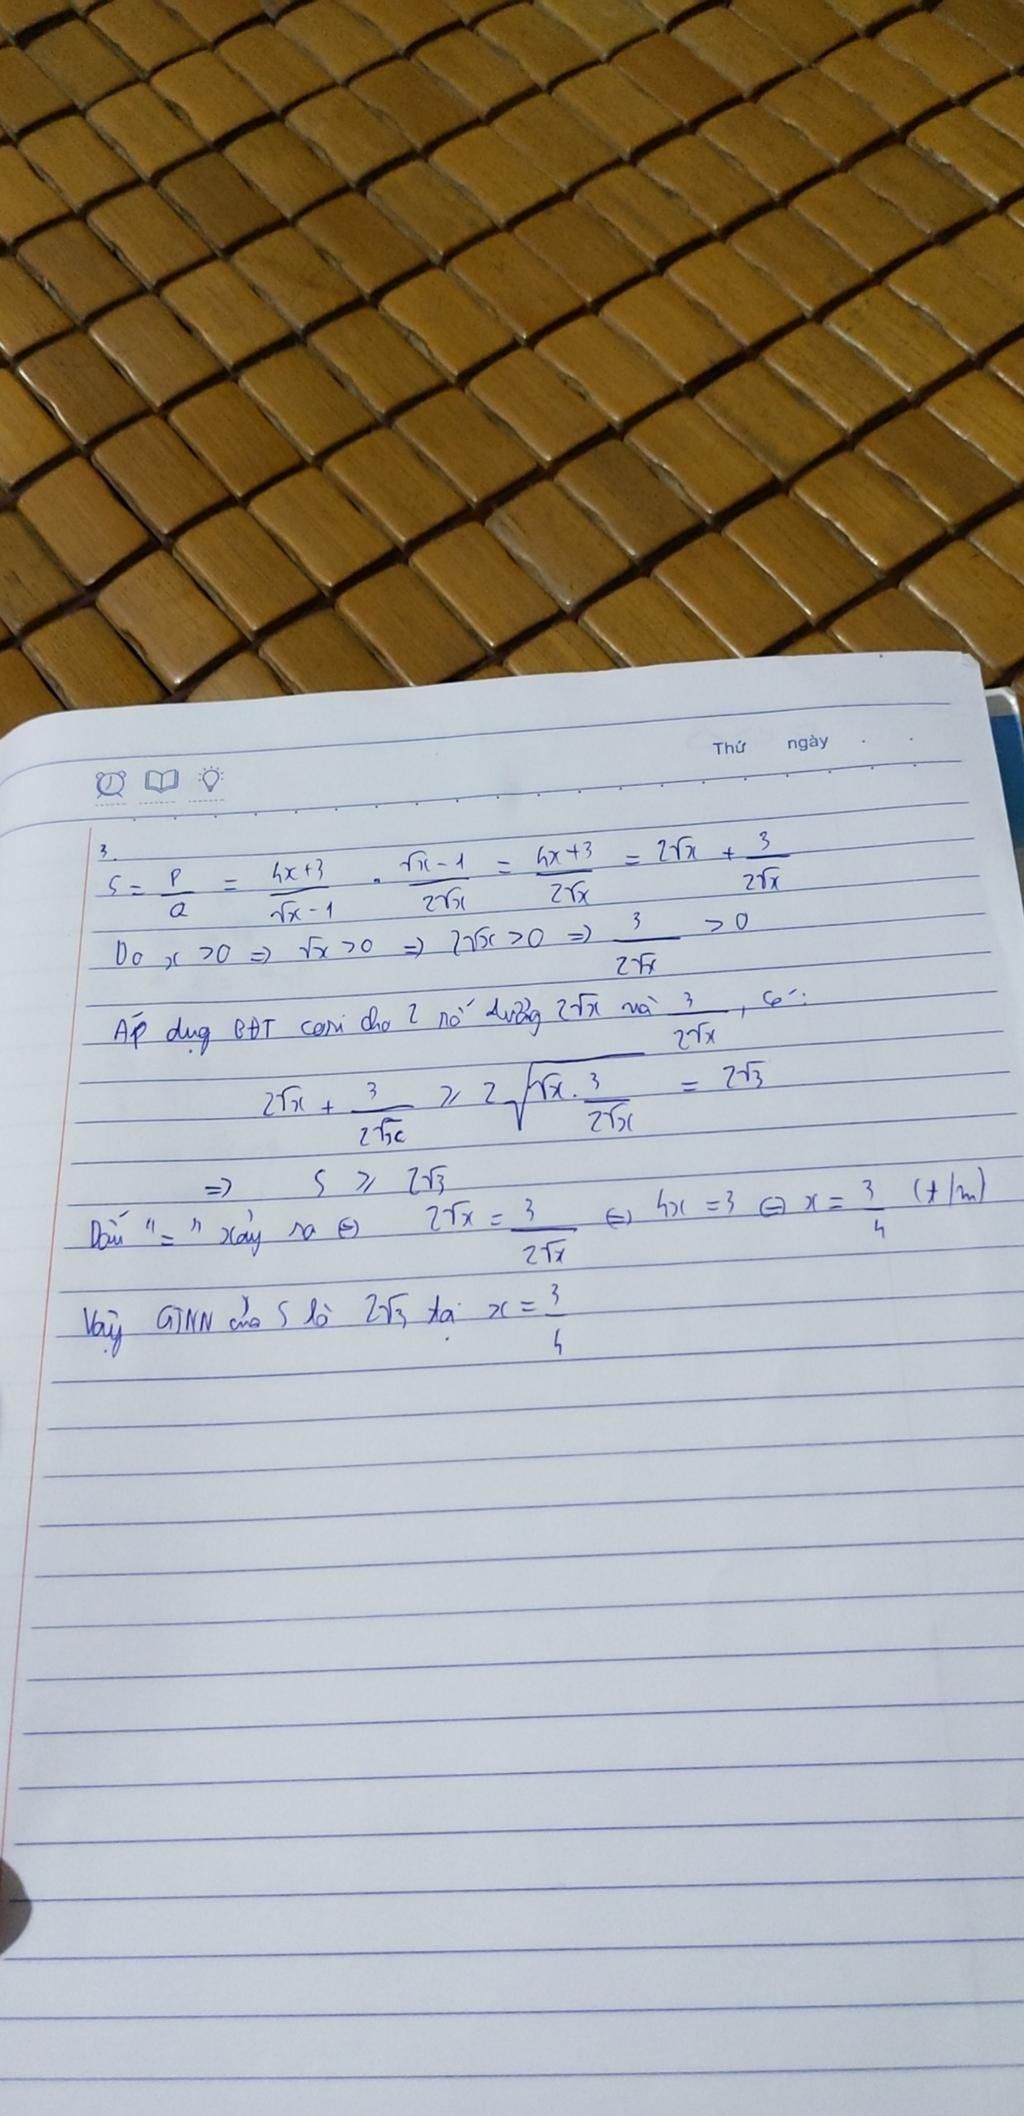 Thứ ngày
3.
S = P/Q = (4x+3)/(√x-1) . (√x-1)/(2√x) = (4x+3)/(2√x) = 2√x + 3/(2√x)
Do x > 0 => √x > 0 => 2√x > 0 => 3/(2√x) > 0
Áp dụg BĐT cosi cho 2 số dương 2√x và 3/(2√x), có:
2√x + 3/(2√x) ≥ 2√(√x . 3/(2√x)) = 2√3
=> S ≥ 2√3
Dấu "=" xảy ra <=> 2√x = 3/(2√x) <=> 4x = 3 <=> x = 3/4 (t/m)
Vậy GTNN của S là 2√3 tại x = 3/4